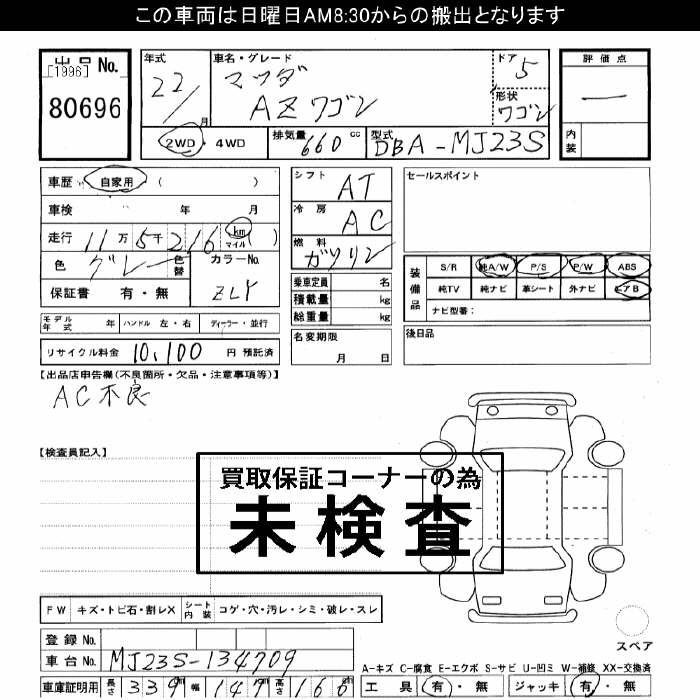 この車両は日曜日AM8:30からの搬出となります
出品 No.
[1996]
80696
年式
22/
月
車名・グレード
マツダ
AZワゴン
ドア
5
形状
ワゴン
評価点
内装
2WD・4WD
排気量
660
cc
型式
DBA-MJ23S
車歴
自家用 ( )
車検 年 月
走行 11万5千216 km マイル ( )
色 グレー
色替
カラーNo.
ZLY
保証書 有・無
シフト
AT
冷房
AC
燃料
ガソリン
乗車定員 名
積載量 kg
総重量 kg
セールスポイント
装備品
S/R 純A/W P/S P/W ABS
純TV 純ナビ 革シート 外ナビ エアB
ナビ型番:
モデル年式 年 ハンドル 左・右 ディーラー・並行
名変期限
月 日
後日品
リサイクル料金 10,100 円 預託済
【出品店申告欄(不良箇所・欠品・注意事項等)】
AC不良
【検査員記入】
買取保証コーナーの為
未検査
FW キズ・トビ石・割レX シート内装 コゲ・穴・汚レ・シミ・破レ・スレ
登録 No.
車台 No. MJ23S-134709
車庫証明用 長さ 339 幅 147 高さ 166
スペア
A-キズ C-腐食 E-エクボ S-サビ U-凹ミ W-補修 XX-交換済
工具 有・無 ジャッキ 有・無